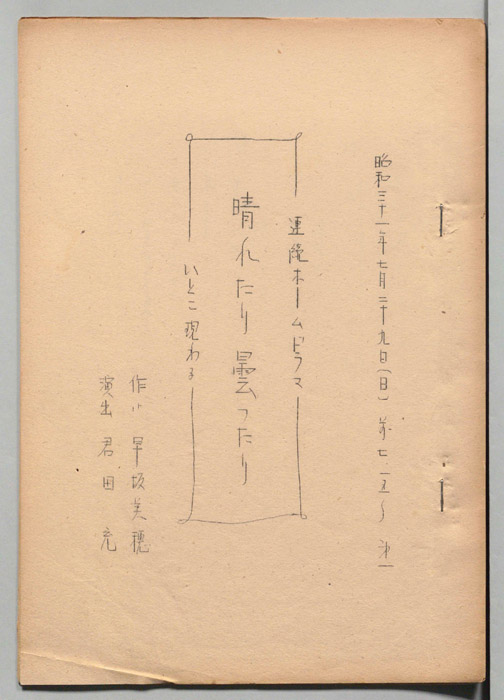 昭和三十一年七月二十九日(日)
連続ホームドラマ
晴れたり曇ったり
いとこ現わる
作 早坂美穂
演出 君田充